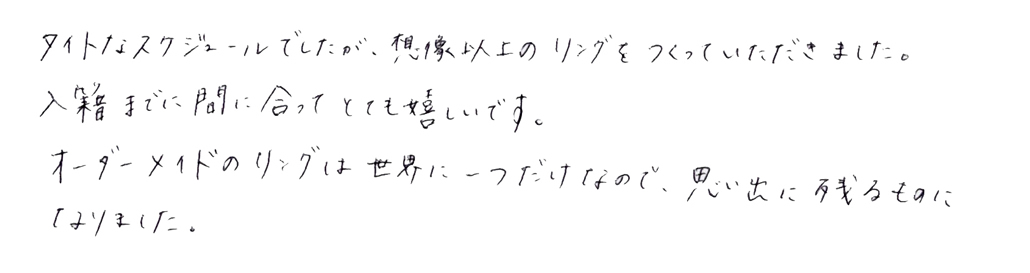 タイトなスケジュールでしたが、想像以上のリングをつくっていただきました。
入籍までに間に合ってとても嬉しいです。
オーダーメイドのリングは世界に一つだけなので、思い出に残るものに
なりました。